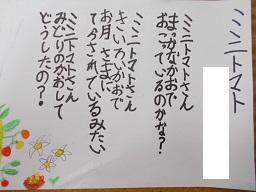 ミニトマト
ミニトマトさん
まっかなかおで
おこっているのかな?
ミニトマトさん
きいろいかおで
お月さまに
てらされているみたい
ミニトマトさん
みどりのかおして
どうしたの?